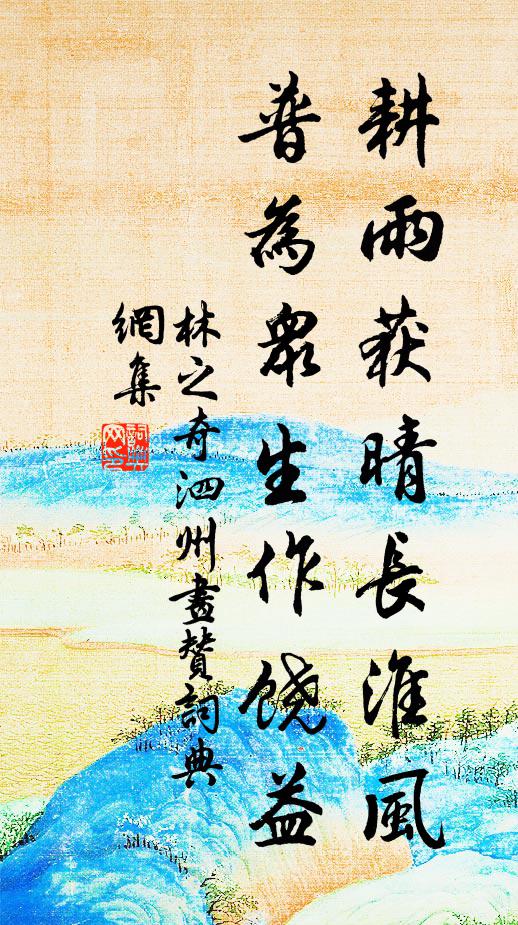 耕雨获晴長淮風
普為眾生作饶益
林之奇泗州畫贊詞典
網集